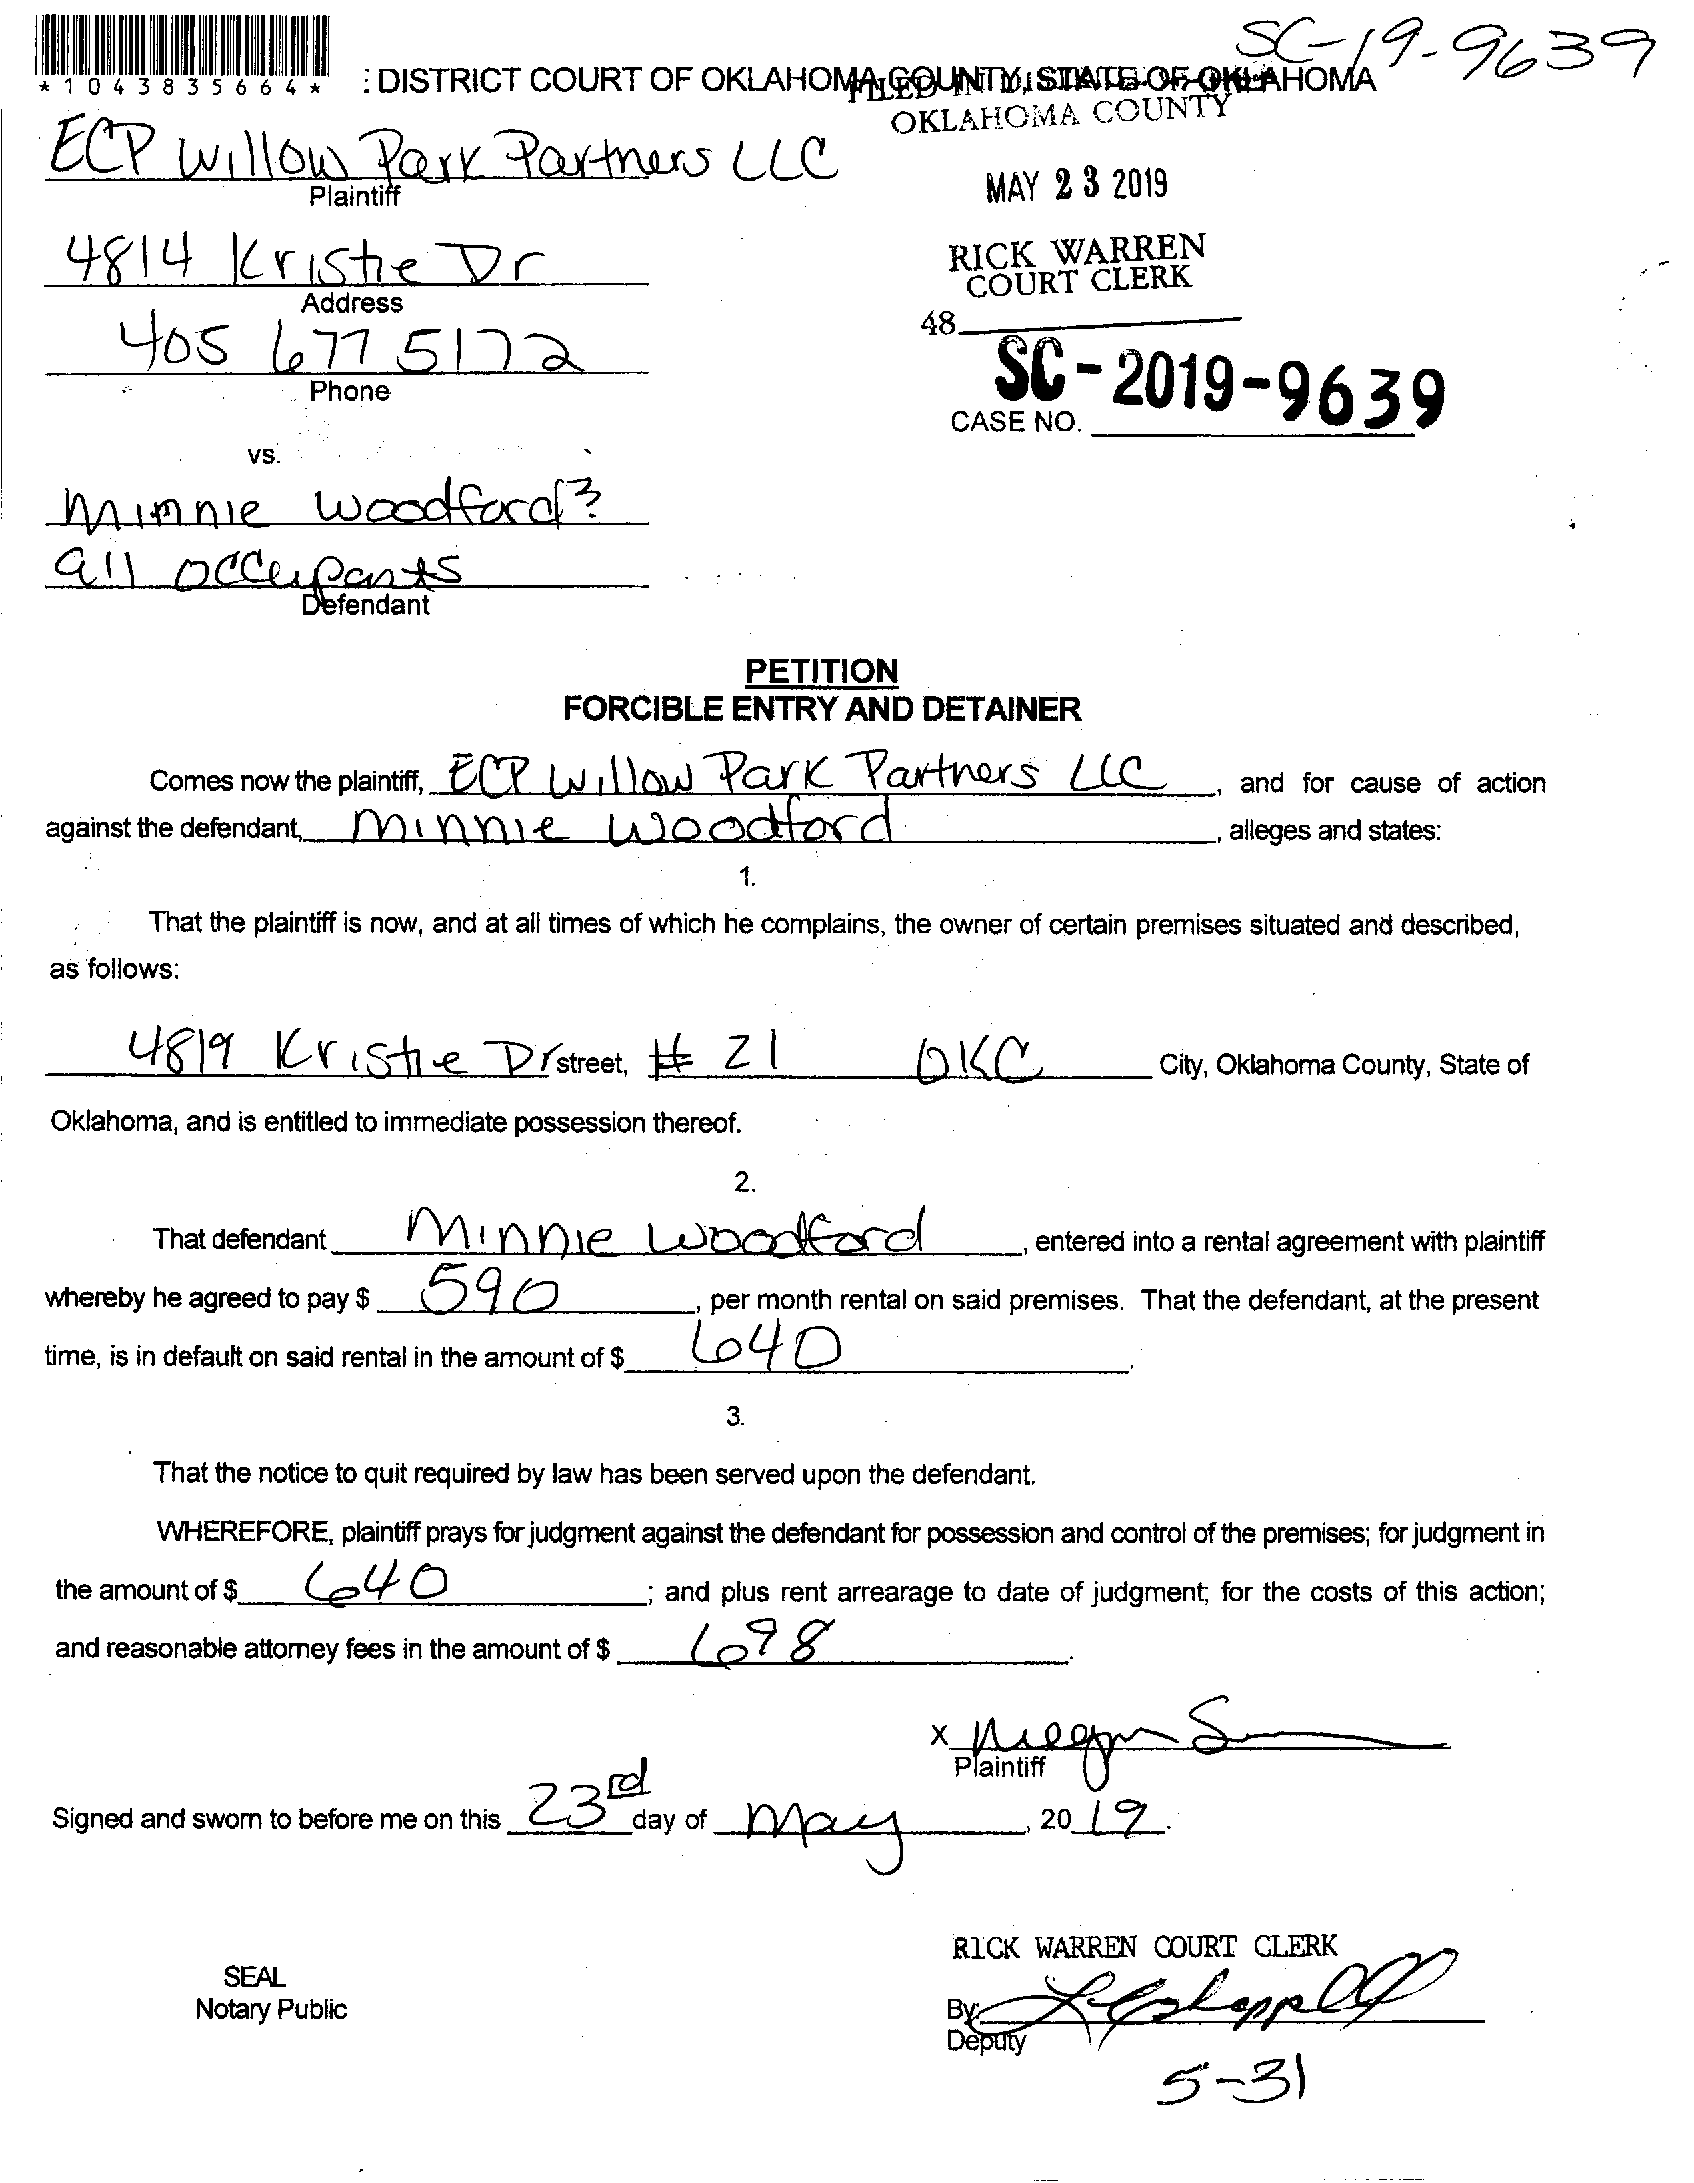 SC-19-9639
*10438356 64*
: DISTRICT COURT OF OKLAHOMA COUNTY, STATE OF OKLAHOMA
FILED IN DISTRICT
OKLAHOMA COUNTY
ECP Willow Park Partners LLC
Plaintiff
MAY 23 2019
4814 Kristie Dr
Address
RICK WARREN
COURT CLERK
405 677 5172
Phone
48
SC-2019-9639
CASE NO.
vs.
Minnie Woodford &
all occupants
Defendant
PETITION
FORCIBLE ENTRY AND DETAINER
Comes now the plaintiff, ECP Willow Park Partners LLC, and for cause of action
against the defendant, Minnie Woodford, alleges and states:
1.
That the plaintiff is now, and at all times of which he complains, the owner of certain premises situated and described,
as follows:
4819 Kristie Dr street, # 21 OKC City, Oklahoma County, State of
Oklahoma, and is entitled to immediate possession thereof.
2.
That defendant Minnie Woodford, entered into a rental agreement with plaintiff
whereby he agreed to pay $ 590, per month rental on said premises. That the defendant, at the present
time, is in default on said rental in the amount of $ 640.
3.
That the notice to quit required by law has been served upon the defendant.
WHEREFORE, plaintiff prays for judgment against the defendant for possession and control of the premises; for judgment in
the amount of $ 640; and plus rent arrearage to date of judgment; for the costs of this action;
and reasonable attorney fees in the amount of $ 698.
x Megan S
Plaintiff
Signed and sworn to before me on this 23rd day of May, 2019.
RICK WARREN COURT CLERK
SEAL
Notary Public
By:
Deputy
5-31